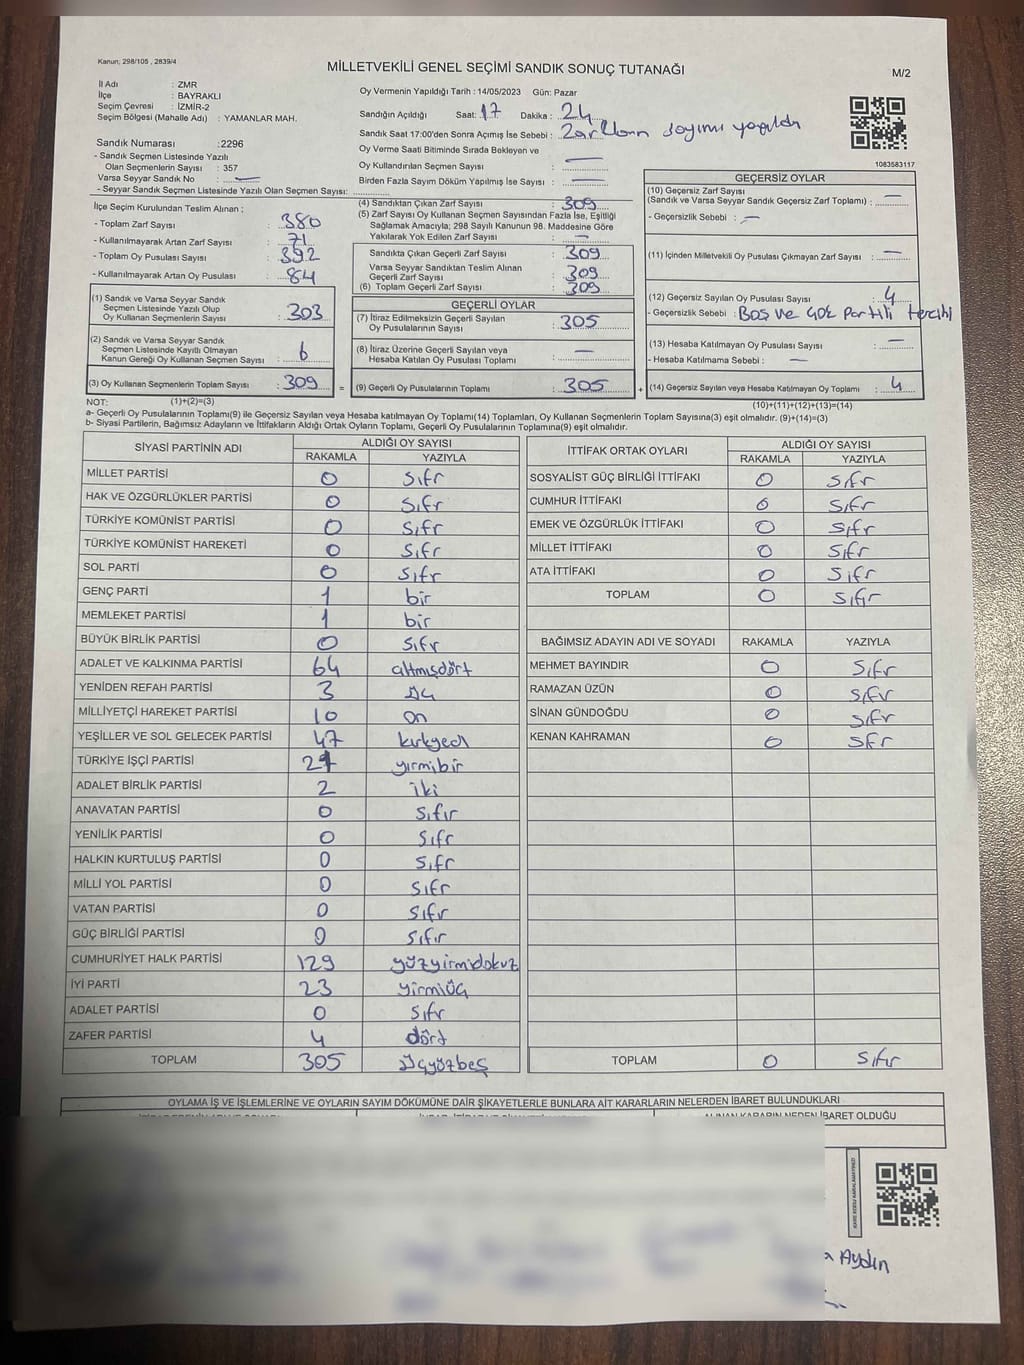 Kanun, 298/105 , 2839/4
MİLLETVEKİLİ GENEL SEÇİMİ SANDIK SONUÇ TUTANAĞI
M/2
İl Adı : ZMR
İlçe : BAYRAKLI
Seçim Çevresi : İZMİR-2
Seçim Bölgesi (Mahalle Adı) : YAMANLAR MAH.
Sandık Numarası :2296
- Sandık Seçmen Listesinde Yazılı
Olan Seçmenlerin Sayısı : 357
Varsa Seyyar Sandık No : —
- Seyyar Sandık Seçmen Listesinde Yazılı Olan Seçmen Sayısı:
Oy Vermenin Yapıldığı Tarih : 14/05/2023 Gün: Pazar
Sandığın Açıldığı Saat: 17 Dakika : 24
Sandık Saat 17:00'den Sonra Açımış İse Sebebi : Zarfların sayımı yapıldı
Oy Verme Saati Bitiminde Sırada Bekleyen ve
Oy Kullandırılan Seçmen Sayısı : —
Birden Fazla Sayım Döküm Yapılmış İse Sayısı : —
1083583117
İlçe Seçim Kurulundan Teslim Alınan ;
- Toplam Zarf Sayısı : 380
- Kullanılmayarak Artan Zarf Sayısı : 71
- Toplam Oy Pusulası Sayısı : 392
- Kullanılmayarak Artan Oy Pusulası : 84
(1) Sandık ve Varsa Seyyar Sandık
Seçmen Listesinde Yazılı Olup
Oy Kullanan Seçmenlerin Sayısı : 303
(2) Sandık ve Varsa Seyyar Sandık
Seçmen Listesinde Kayıtlı Olmayan
Kanun Gereği Oy Kullanan Seçmen Sayısı : 6
(3) Oy Kullanan Seçmenlerin Toplam Sayısı : 309 =
(4) Sandıktan Çıkan Zarf Sayısı : 309
(5) Zarf Sayısı Oy Kullanan Seçmen Sayısından Fazla İse, Eşitliği
Sağlamak Amacıyla; 298 Sayılı Kanunun 98. Maddesine Göre
Yakılarak Yok Edilen Zarf Sayısı : —
Sandıkta Çıkan Geçerli Zarf Sayısı : 309
Varsa Seyyar Sandıktan Teslim Alınan
Geçerli Zarf Sayısı : 309
(6) Toplam Geçerli Zarf Sayısı : 309
GEÇERLİ OYLAR
(7) İtiraz Edilmeksizin Geçerli Sayılan
Oy Pusulalarının Sayısı : 305
(8) İtiraz Üzerine Geçerli Sayılan veya
Hesaba Katılan Oy Pusulası Toplamı : —
(9) Geçerli Oy Pusulalarının Toplamı : 305 +
GEÇERSİZ OYLAR
(10) Geçersiz Zarf Sayısı
(Sandık ve Varsa Seyyar Sandık Geçersiz Zarf Toplamı) : —
- Geçersizlik Sebebi : —
(11) İçinden Milletvekili Oy Pusulası Çıkmayan Zarf Sayısı : —
(12) Geçersiz Sayılan Oy Pusulası Sayısı : 4
- Geçersizlik Sebebi : Boş ve çok Partili tercihi
(13) Hesaba Katılmayan Oy Pusulası Sayısı : —
- Hesaba Katılmama Sebebi : —
(14) Geçersiz Sayılan veya Hesaba Katılmayan Oy Toplamı : 4
NOT: (1)+(2)=(3)
(10)+(11)+(12)+(13)=(14)
a- Geçerli Oy Pusulalarının Toplamı(9) ile Geçersiz Sayılan veya Hesaba katılmayan Oy Toplamı(14) Toplamları, Oy Kullanan Seçmenlerin Toplam Sayısına(3) eşit olmalıdır. (9)+(14)=(3)
b- Siyasi Partilerin, Bağımsız Adayların ve İttifakların Aldığı Ortak Oyların Toplamı, Geçerli Oy Pusulalarının Toplamına(9) eşit olmalıdır.
SİYASİ PARTİNİN ADI ALDIĞI OY SAYISI
RAKAMLA YAZIYLA
MİLLET PARTİSİ 0 Sıfr
HAK VE ÖZGÜRLÜKLER PARTİSİ 0 Sıfr
TÜRKİYE KOMÜNİST PARTİSİ 0 Sıfr
TÜRKİYE KOMÜNİST HAREKETİ 0 Sıfr
SOL PARTİ 0 Sıfr
GENÇ PARTİ 1 bir
MEMLEKET PARTİSİ 1 bir
BÜYÜK BİRLİK PARTİSİ 0 Sıfr
ADALET VE KALKINMA PARTİSİ 64 altmışdört
YENİDEN REFAH PARTİSİ 3 üç
MİLLİYETÇİ HAREKET PARTİSİ 10 on
YEŞİLLER VE SOL GELECEK PARTİSİ 47 kırkyedi
TÜRKİYE İŞÇİ PARTİSİ 21 yirmibir
ADALET BİRLİK PARTİSİ 2 iki
ANAVATAN PARTİSİ 0 Sıfır
YENİLİK PARTİSİ 0 Sıfr
HALKIN KURTULUŞ PARTİSİ 0 Sıfr
MİLLİ YOL PARTİSİ 0 Sıfr
VATAN PARTİSİ 0 Sıfır
GÜÇ BİRLİĞİ PARTİSİ 0 Sıfır
CUMHURİYET HALK PARTİSİ 129 yüzyirmidokuz
İYİ PARTİ 23 yirmiüç
ADALET PARTİSİ 0 Sıfr
ZAFER PARTİSİ 4 dört
TOPLAM 305 üçyüzbeş
İTTİFAK ORTAK OYLARI ALDIĞI OY SAYISI
RAKAMLA YAZIYLA
SOSYALİST GÜÇ BİRLİĞİ İTTİFAKI 0 Sıfr
CUMHUR İTTİFAKI 0 Sıfr
EMEK VE ÖZGÜRLÜK İTTİFAKI 0 Sıfr
MİLLET İTTİFAKI 0 Sıfr
ATA İTTİFAKI 0 Sıfr
TOPLAM 0 Sıfır
BAĞIMSIZ ADAYIN ADI VE SOYADI RAKAMLA YAZIYLA
MEHMET BAYINDIR 0 Sıfr
RAMAZAN ÜZÜN 0 Sıfr
SİNAN GÜNDOĞDU 0 Sıfr
KENAN KAHRAMAN 0 Sfr
TOPLAM 0 Sıfır
OYLAMA İŞ VE İŞLEMLERİNE VE OYLARIN SAYIM DÖKÜMÜNE DAİR ŞİKAYETLERLE BUNLARA AİT KARARLARIN NELERDEN İBARET BULUNDUKLARI
ALINAN KARARIN NEDEN İBARET OLDUĞU
Aydın